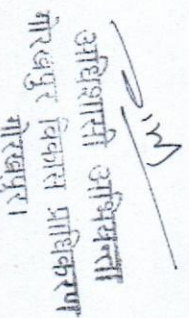 अधिशासी अभियन्ता
गोरखपुर विकास प्राधिकरण
गोरखपुर।